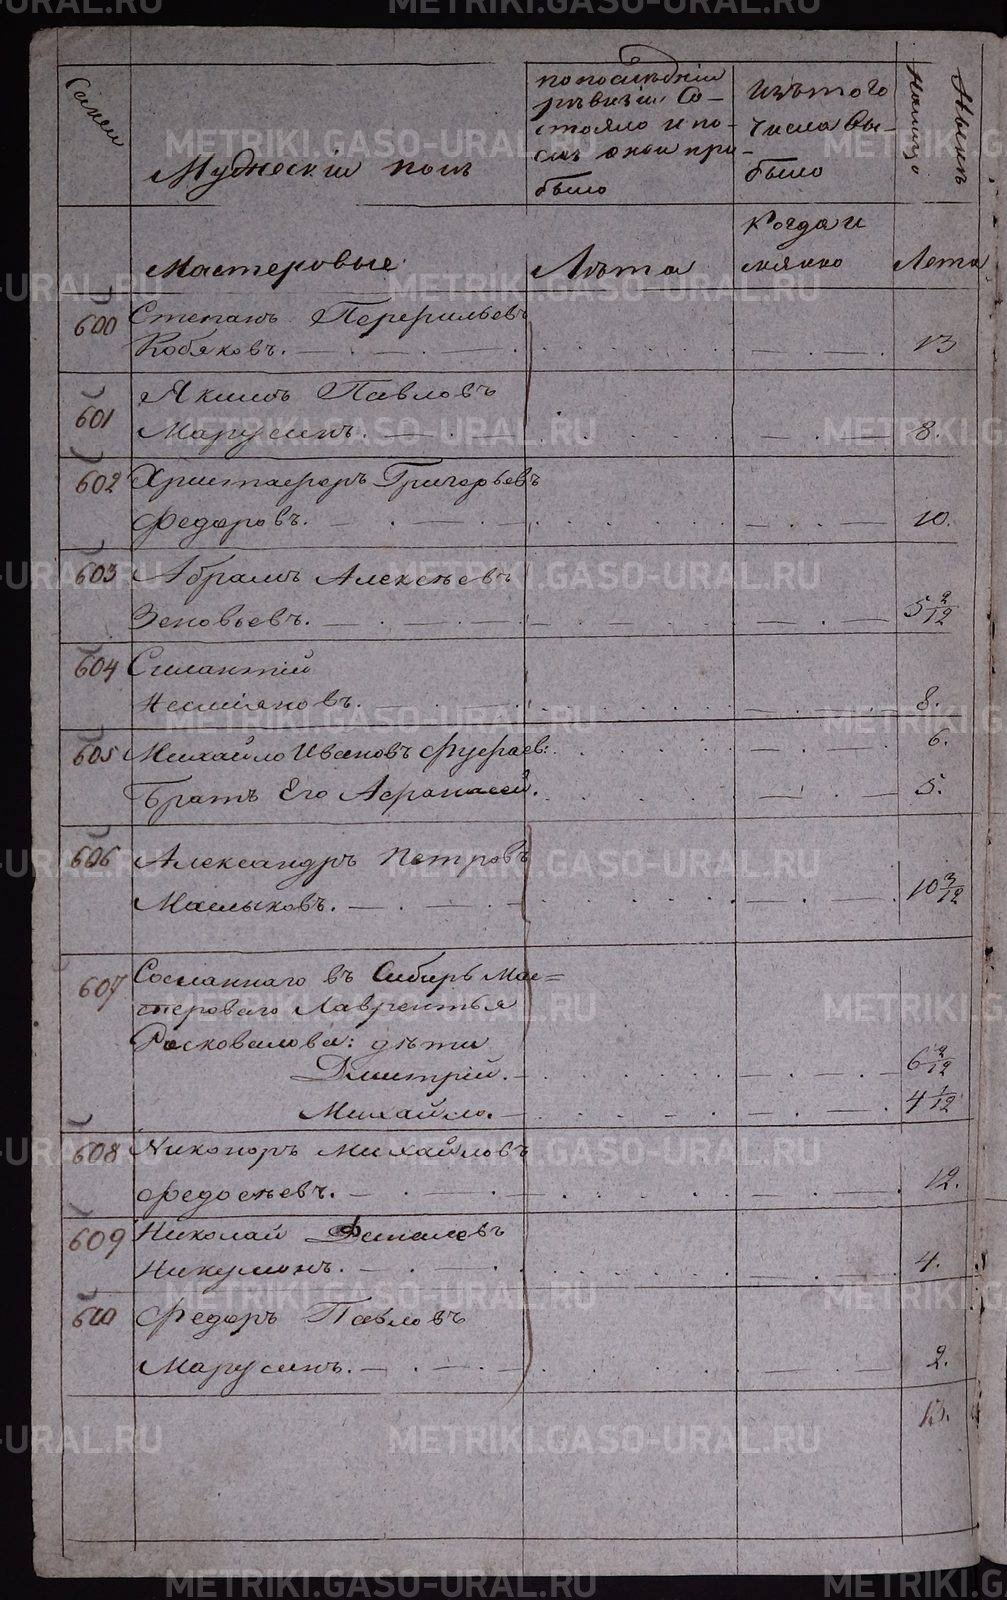 Семьи
Мужескій полъ
по последніи
ревизіи Со-
стояло и по-
слѣ оной при-
было
Изъ того
числа вы-
было
Ныне
налицо
Мастеровые
Лѣта
Когда и
Лета
600 Степанъ Перфильевъ
Кобяковъ. 13
601 Якимъ Павловъ
Марусинъ. 8.
602 Христофоръ Григорьевъ
Федоровъ. 10.
603 Абрамъ Алексѣевъ
Зеновьевъ. 5 2/12
604 Силантій
8.
605 Михайло Ивановъ 6.
Братъ Его Афонасей. 5.
606 Александръ Петровъ
Маслыковъ. 10 3/12
607 Сосланнаго въ Сибирь Мас=
тероваго Лаврентья
Расковалова: дѣти
Дмитрій. 6 2/12
Михайло. 4 1/12
608 Никоноръ Михайловъ
Федосѣевъ. 12.
609 Николай
Никулинъ. 4.
610 Федоръ Павловъ
Марусинъ. 2.
13.
METRIKI.GASO-URAL.RU